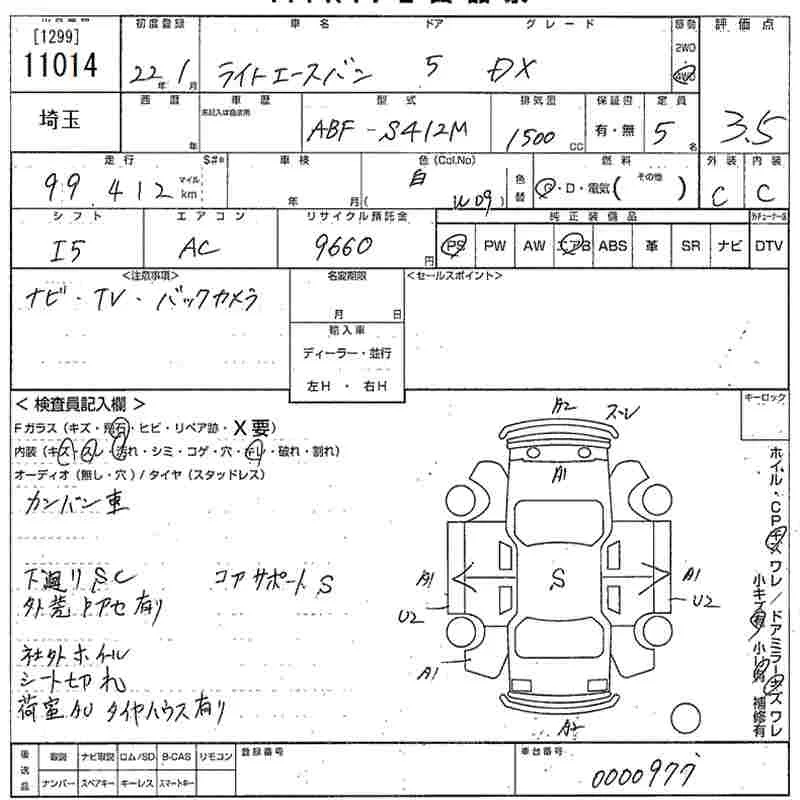 [1299]
11014
初度登録
22年 1月
車名
ライトエースバン
ドア
5
グレード
DX
駆動
2WD
4WD
評価点
3.5
埼玉
西暦
年
車歴
名記入は自家用
型式
ABF-S412M
排気量
1500 CC
保証書
有・無
定員
5名
走行
99,412
マイル
km
S#*
車検
年 月
色(Col,No)
白
( W09)
色替
燃料
G・D・電気( その他 )
外装
C
内装
C
シフト
I5
エアコン
AC
リサイクル預託金
9660
円
純正装備品
PS
PW
AW
エアB
ABS
革
SR
ナビ
DTV
<注意事項>
ナビ・TV・バックカメラ
名変期限
月 日
輸入車
ディーラー・並行
左H ・ 右H
<セールスポイント>
< 検査員記入欄 >
Fガラス(キズ・飛石・ヒビ・リペア跡・X要)
内装(キズ・スレ・汚れ・シミ・コゲ・穴・キレ・破れ・割れ)
オーディオ(無し・穴)/タイヤ(スタッドレス)
カンバン車
下廻りSC
コアサポートS
外装ドアセ有り
社外ホイール
シート切れ
荷室AU タイヤハウス有り
キーロック
A2
スーレ
A1
S
A1
U2
A1
A1
U2
A2
ホイル・CPキズワレ/ドアミラーキズワレ
小キズ有 小凹有 補修有
後送品
取説
ナビ取説
ロム/SD
B-CAS
リモコン
ナンバー
スペアキー
キーレス
スマートキー
登録番号
車台番号
0000977